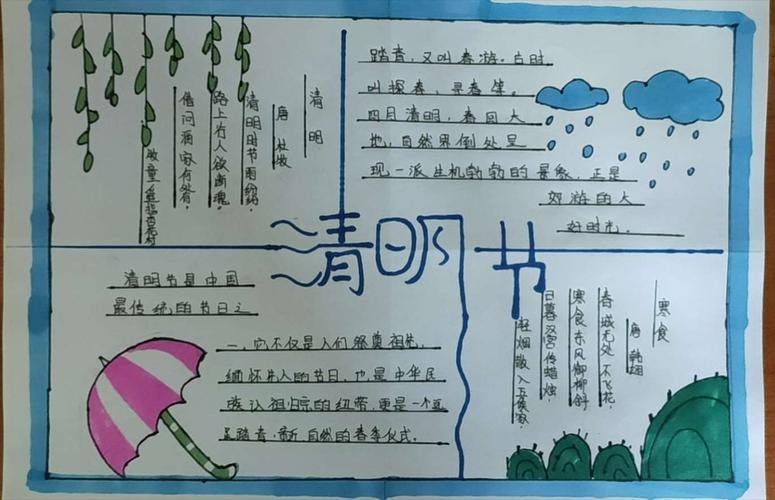 清明
唐 杜牧
清明时节雨纷纷,
路上行人欲断魂。
借问酒家何处有,
牧童遥指杏花村
踏青,又叫春游。古时
叫探春、寻春等。
四月清明,春回大
地,自然界倒处呈
现一派生机勃勃的景象,正是
郊游的大
好时光。
清明节
清明节是中国
最传统的节日之
一,它不仅是人们祭奠祖先,
缅怀先人的节日,也是中华民
族认祖归宗的纽带,更是一个远
足踏青,亲近自然的春季仪式。
寒食
唐 韩翃
春城无处不飞花,
寒食东风御柳斜
日暮汉宫传蜡烛,
轻烟散入五侯家.